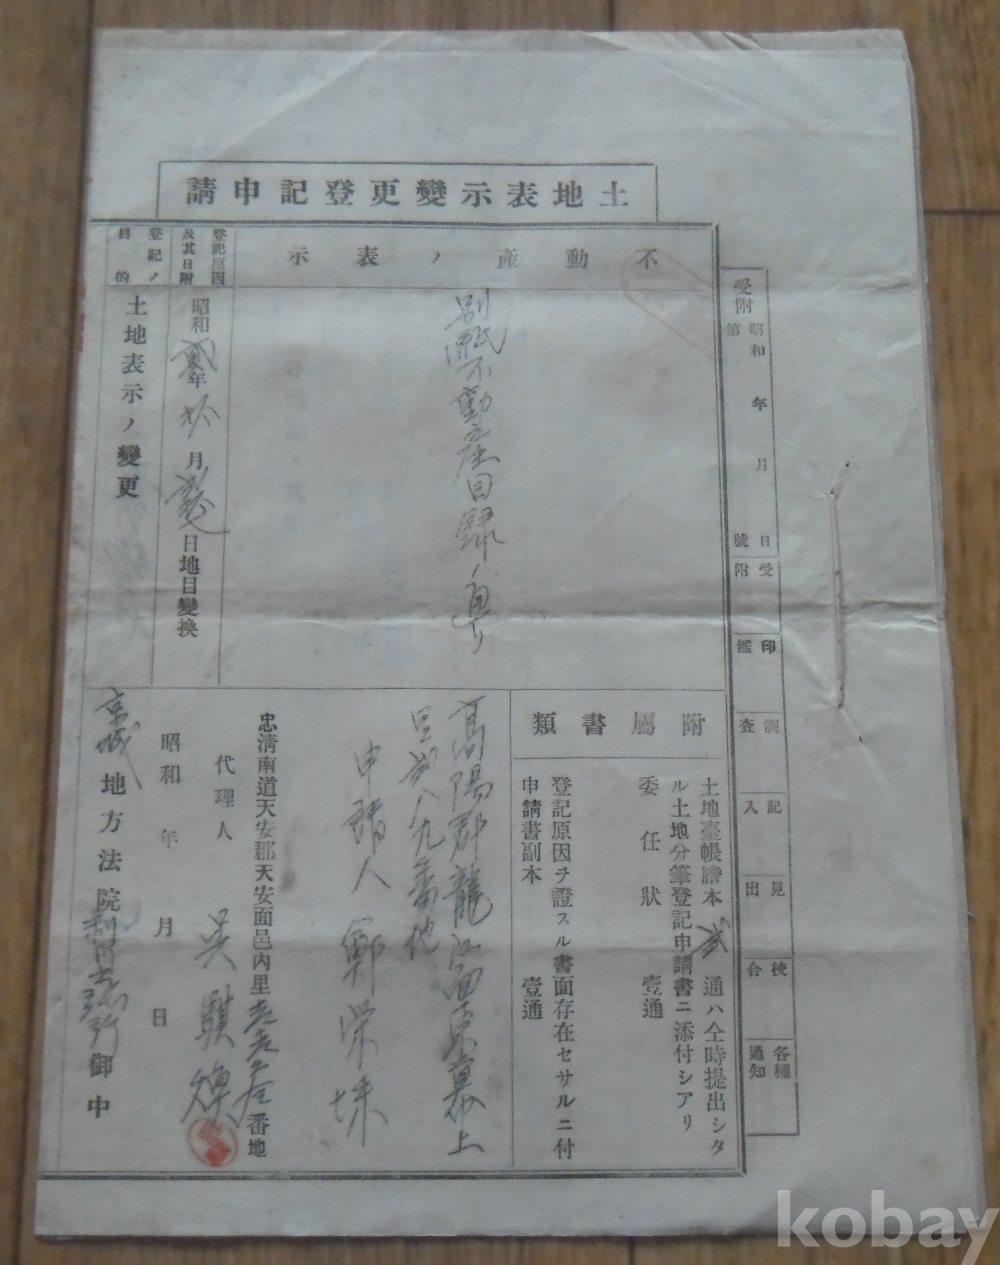 土地表示變更登記申請
受附 昭和 年 月 日
第 號
受附
印鑑
調査
記入
見出
校合
各種通知
不動産ノ表示
別紙不動産目録ノ通リ
登記原因及其日附
昭和貳年拾月 日地目變換
登記ノ目的
土地表示ノ變更
附屬書類
土地臺帳謄本 貳 通ハ仝時提出シタ
ル土地分筆登記申請書ニ添付シアリ
委任狀 壹通
登記原因ヲ證スル書面存在セサルニ付
申請書副本 壹通
高陽郡龍江面東幕上
里貳八九番地
申請人 鄭榮
忠清南道天安郡天安面邑内里 番地
代理人 吳
昭和 年 月 日
京城地方法院 御中
kobay